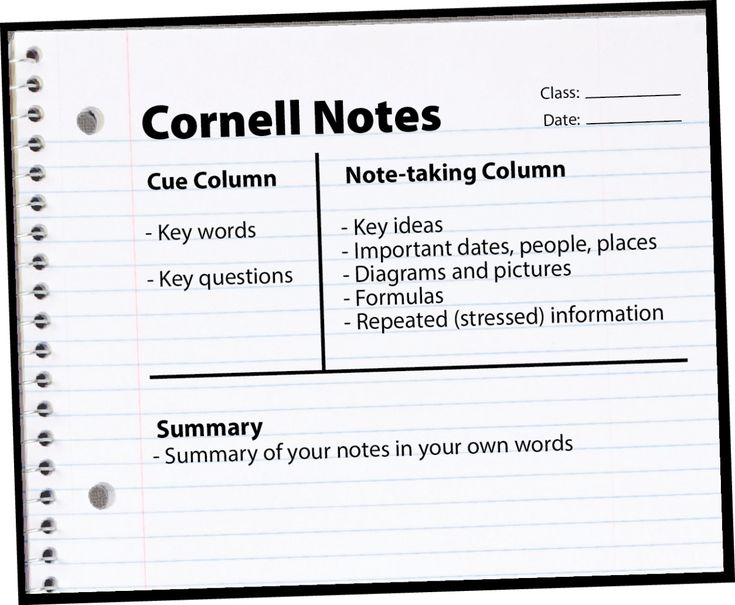 Class: 
Date: 
Cornell Notes
Cue Column
- Key words
- Key questions
Note-taking Column
- Key ideas
- Important dates, people, places
- Diagrams and pictures
- Formulas
- Repeated (stressed) information
Summary
- Summary of your notes in your own words